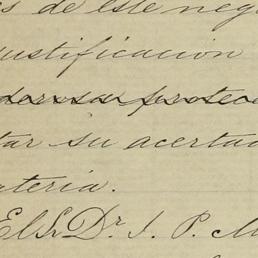 s de este neg
justificacion
tar su acerta
ateria.
El Sr Dr. J. P. M